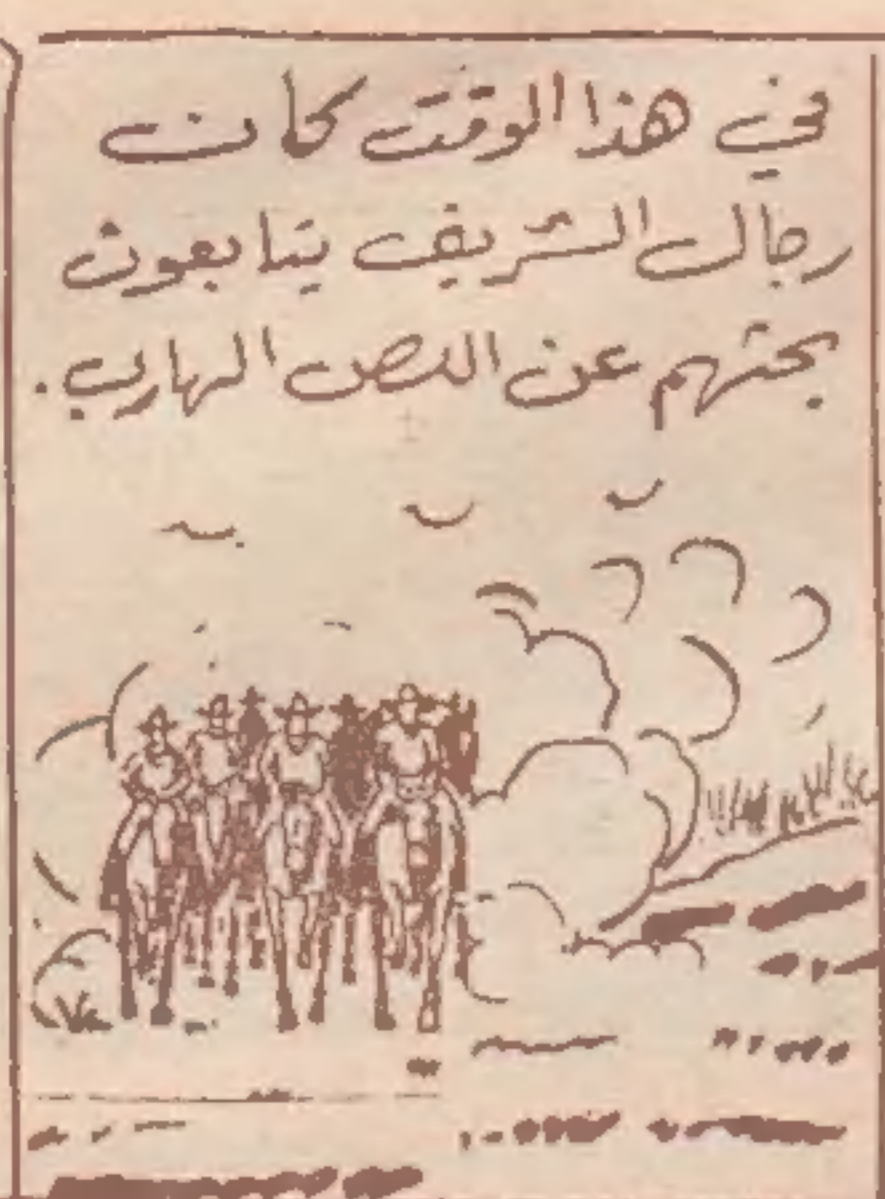 في هذا الوقت كان
رجال الشريف يتابعون
بحثهم عن اللص الهارب.